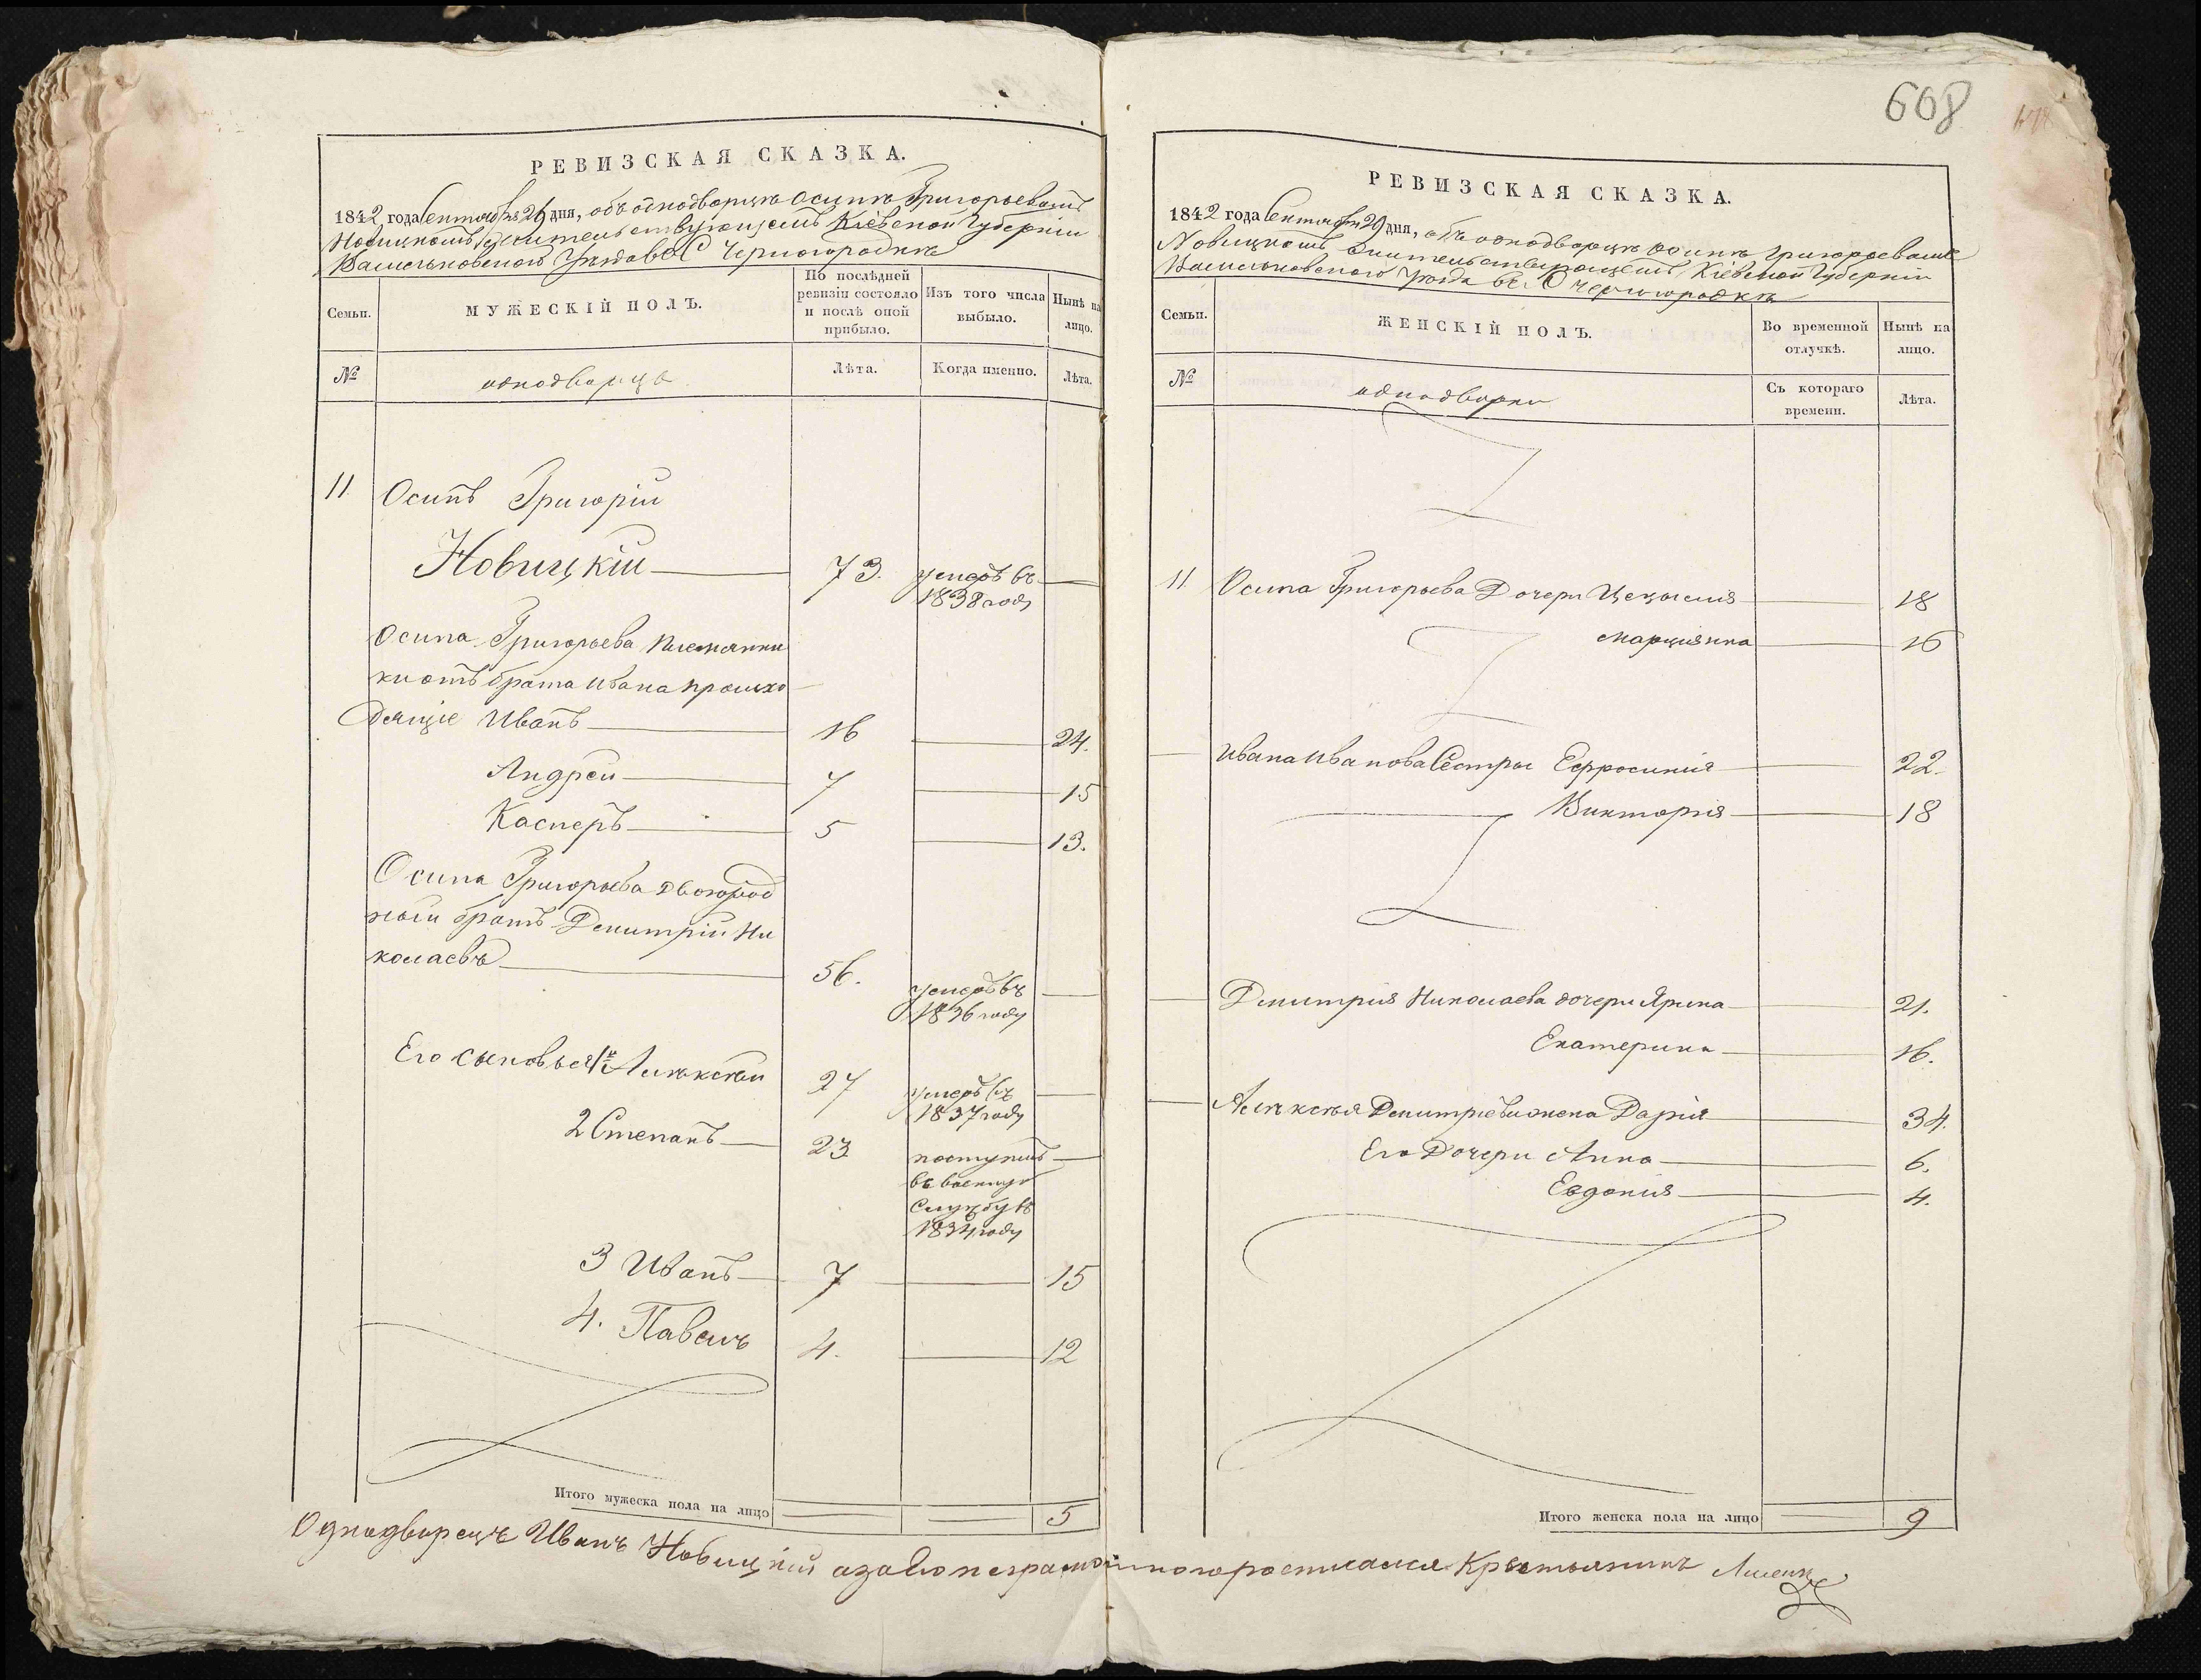 608
РЕВИЗСКАЯ СКАЗКА.
1842 года Сентября 29 дня, объ однодворцѣ Осипѣ Григорьевомъ
Новицкомъ жительствующемъ Кіевской Губерніи
Васильковского Уѣзда въ С Черногородкѣ
Семьи.
МУЖЕСКІЙ ПОЛЪ.
По послѣдней ревизіи состояло и послѣ оной прибыло.
Изъ того числа выбыло.
Нынѣ на лицо.
№
однодворцы
Лѣта.
Когда именно.
Лѣта.
11 Осипъ Григорій
Новицкій 73. умеръ въ
1838 году
Осипа Григорьева племянни
ки отъ брата Ивана происхо
дящіе Иванъ 16 24.
Андрей 7 15
Касперъ 5 13.
Осипа Григорьева двоюрод
ный братъ Дмитрій Ни
колаевъ 56. умеръ въ
1836 году
Его сыновья 1й Алѣксѣй 27 умеръ въ
1837 году
2 Степанъ 23 поступилъ
въ военную
Службу въ
1834 году
3 Иванъ 7 15
4. Павелъ 4. 12
Итого мужеска пола на лицо 5
РЕВИЗСКАЯ СКАЗКА.
1842 года Сентября 29 дня, объ однодворцѣ Осипѣ Григорьевомъ
Новицкомъ жительствующемъ Кіевской Губерніи
Васильковского Уѣзда въ С Черногородкѣ
Семьи.
ЖЕНСКІЙ ПОЛЪ.
Во временной отлучкѣ.
Нынѣ на лицо.
№
однодворки
Съ котораго времени.
Лѣта.
11 Осипа Григорьева Дочери Цецылия 18
Марцияна 16
Ивана Иванова Сестры Ефросиния 22.
Виктория 18
Дмитрия Николаева дочери Ярина 21.
Екатерина 16.
Алѣксѣя Дмитріева жена Дарія 34.
Его Дочери Анна 6.
Евдокия 4.
Итого женска пола на лицо 9
Однодворецъ Иванъ Новицкій а за его неграмотного росписался Крестьянинъ